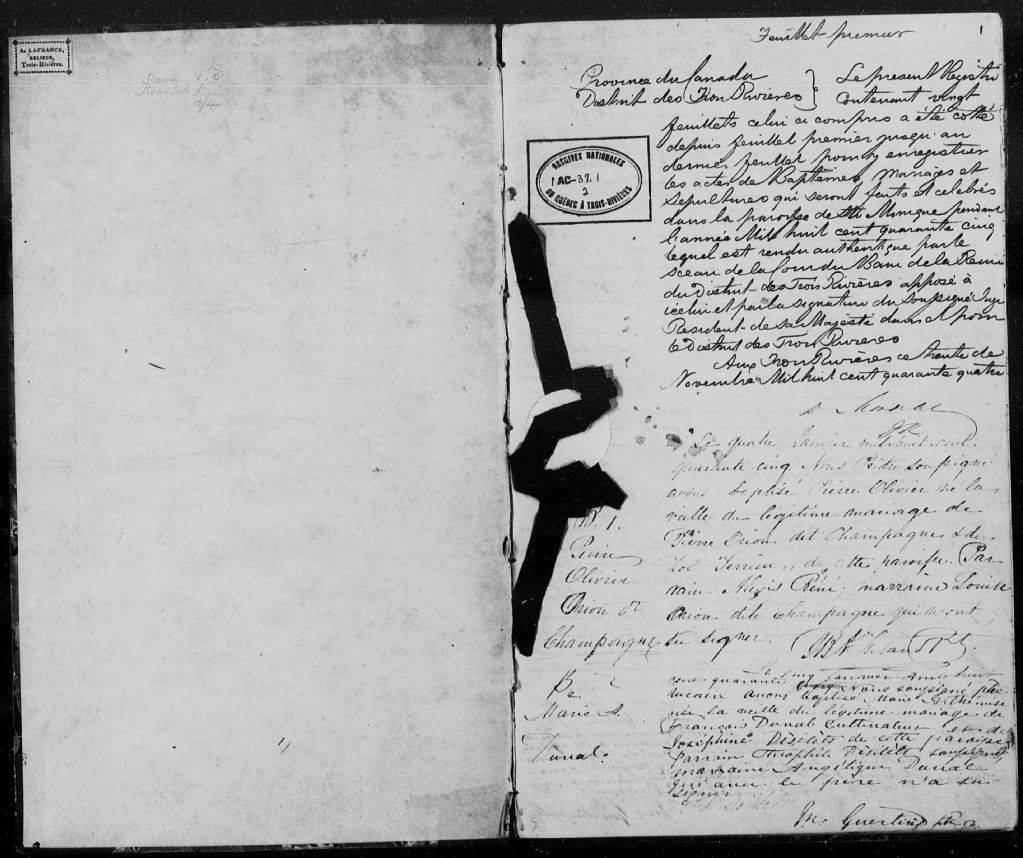 A. LAFRANCE,
RELIEUR,
Trois-Rivières.
Feuillet premier
1
Province du Canada
District des Trois Rivieres
Le present Registre
contenant vingt
feuillets celui ci compris a été cotté
depuis feuillet premier jusqu'au
dernier feuillet pour y enregistrer
les actes de Baptêmes, Mariages et
Sepultures qui seront faits et celebrés
dans la paroisse de Ste Monique pendant
l'année Mil huit cent quarante cinq
lequel est rendu authentique par le
sceau de la Cour du Banc de la Reine
du District des Trois Rivières apposé à
icelui et par la signature du Soussigné Juge
Resident de Sa Majesté dans et pour
le District des Trois Rivieres
Aux Trois Rivières ce trente de
Novembre Mil huit cent quarante quatre
ARCHIVES NATIONALES
AC-37.1
2
DU QUÉBEC À TROIS-RIVIÈRES
B. 1.
Pierre
Olivier
Orion dt
Champagne
Le quatre Janvier mil huit cent
quarante cinq Nous Prêtre soussigné
avons baptisé Pierre Olivier né la
veille du légitime mariage de
Pierre Orion dit Champagne & de
Zoé Terrien, de cette paroisse. Par
rain Alexis Réné, marraine Louise
Orion dite Champagne qui n'ont
su signer.
B. 2
Marie A.
Duval.
Le cinq janvier mil huit
cent quarante cinq Nous soussigné prê
avons baptisé Marie
née la veille du légitime mariage de
François Duval Cultivateur et de
Joséphine Désilets de cette paroisse
Parrain Théophile Désilets soussigné
marraine Angélique Duval
qui avec le père n'a su
signer